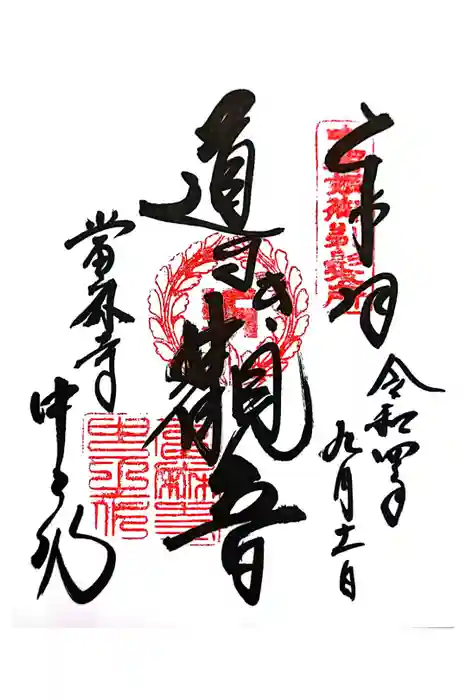 奉拝
令和四年
九月十一日
導き觀音
當麻寺
中之坊